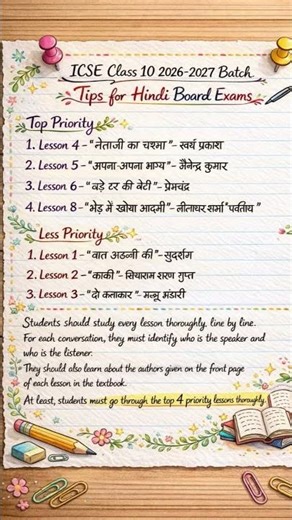 ICSE Class 10 2026-2027 Batch
Tips for Hindi Board Exams
Top Priority
1. Lesson 4 - "नेताजी का चश्मा" - स्वयं प्रकाश
2. Lesson 5 - "अपना-अपना भाग्य" - जैनेन्द्र कुमार
3. Lesson 6 - "बड़े टर की बेटी" - प्रेमचंद
4. Lesson 8 - "भेड़ में खोया आदमी" - लीलाधर शर्मा "पर्वतीय"
Less Priority
1. Lesson 1 - "वात अठन्नी की" - सुदर्शन
2. Lesson 2 - "काकी" - सियाराम शरण गुप्त
3. Lesson 3 - "दो कलाकार" - मन्नू भंडारी
Students should study every lesson thoroughly, line by line.
For each conversation, they must identify who is the speaker and
who is the listener.
They should also learn about the authors given on the front page
of each lesson in the textbook.
At least, students must go through the top 4 priority lessons thoroughly.